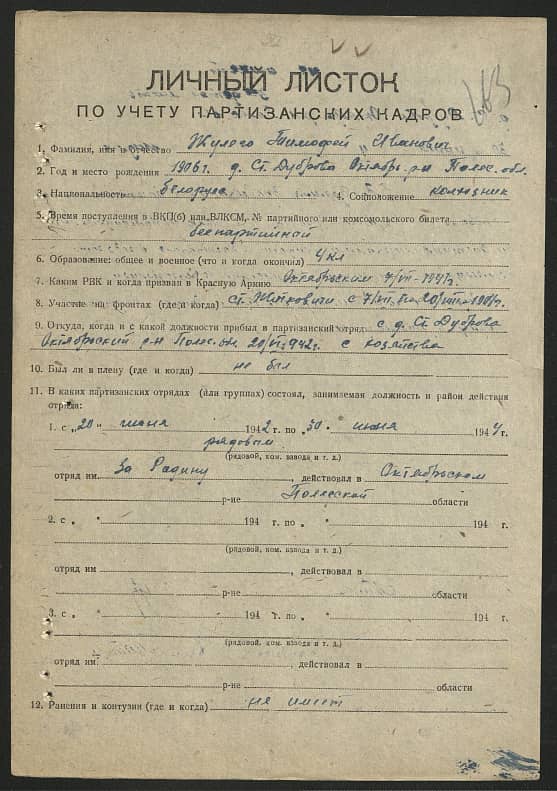 ЛИЧНЫЙ ЛИСТОК
ПО УЧЕТУ ПАРТИЗАНСКИХ КАДРОВ
1. Фамилия, имя и отчество Жулего Тимофей Иванович
2. Год и место рождения 1906 г. д. Ст. Дуброва Октябр. р-н Полес. обл.
3. Национальность белорус 4. Соцположение колхозник
5. Время поступления в ВКП(б) или ВЛКСМ, № партийного или комсомольского билета
беспартийной
6. Образование: общее и военное (что и когда окончил) 4 кл
7. Каким РВК и когда призван в Красную Армию Октябрьским 7/VII-1941г.
8. Участие на фронтах (где и когда) ст. Житковичи с 7/VII по 20/VIII-1941г.
9. Откуда, когда и с какой должности прибыл в партизанский отряд с д. Ст Дуброва
Октябрьский р-н Полес. 20/VI-1942г. с хозяйства
10. Был ли в плену (где и когда) не был
11. В каких партизанских отрядах (или группах) состоял, занимаемая должность и район действия
отряда:
1. с „20" июня 1942 г. по „30" июня 1944 г.
рядовым
(рядовой, ком. взвода и т. д.)
отряд им За Радиму, действовал в Октябрьском
р-не Полесской области
2. с „ " 194 г. по „ " 194 г.
(рядовой, ком. взвода и т. д.)
отряд им , действовал в
р-не области
3. с „ " 194 г. по „ " 194 г.
(рядовой, ком. взвода и т. д.)
отряд им. , действовал в
р-не области
12. Ранения и контузии (где и когда) не имеет